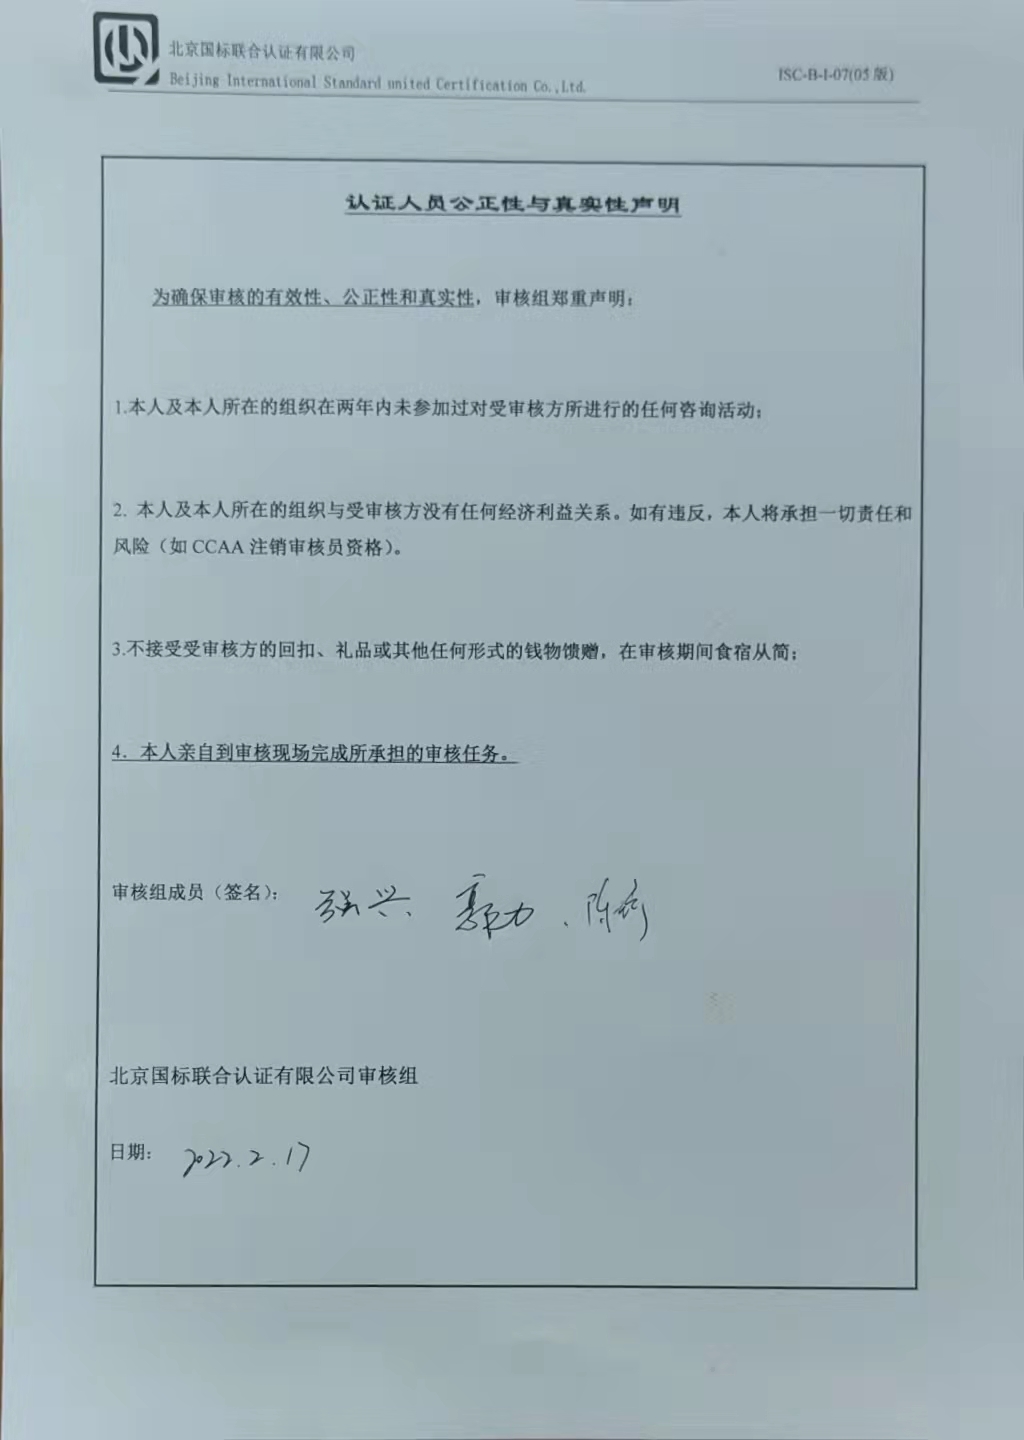 北京国标联合认证有限公司
Beijing International Standard united Certification Co.,Ltd.
ISC-B-I-07(05版)
认证人员公正性与真实性声明
为确保审核的有效性、公正性和真实性，审核组郑重声明：
1.本人及本人所在的组织在两年内未参加过对受审核方所进行的任何咨询活动；
2. 本人及本人所在的组织与受审核方没有任何经济利益关系。如有违反，本人将承担一切责任和
风险（如 CCAA 注销审核员资格）。
3.不接受受审核方的回扣、礼品或其他任何形式的钱物馈赠，在审核期间食宿从简；
4．本人亲自到审核现场完成所承担的审核任务。
审核组成员（签名）： 强兴、郭力、陈
北京国标联合认证有限公司审核组
日期： 2022.2.17